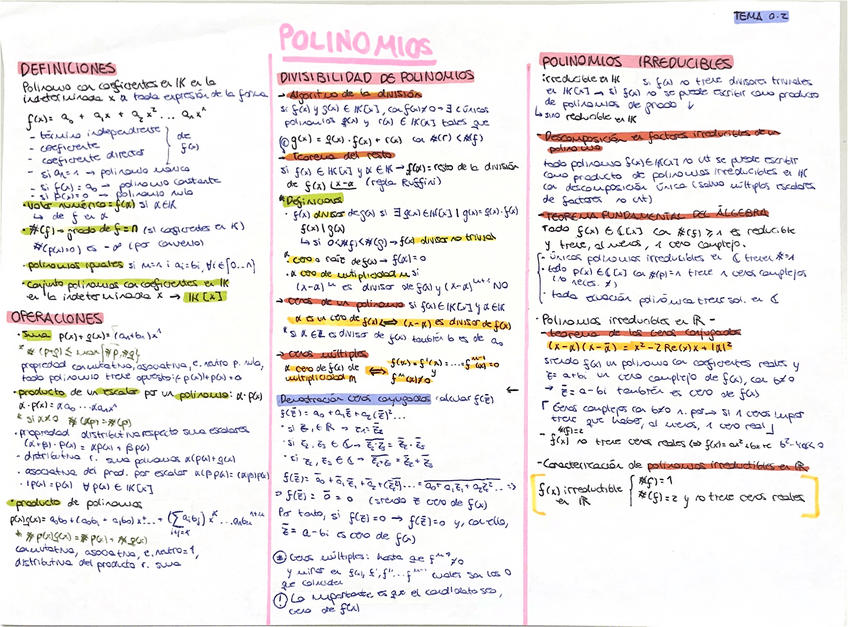 TEMA 0.2
POLINOMIOS
DEFINICIONES
Polinomio con coeficientes en IK en la
indeterminada x a toda expresión de la forma
f(x) = a₀ + a₁x + a₂x² ... aₙxⁿ
- término independiente
- coeficiente
- coeficiente director
de f(x)
- si aₙ=1 → polinomio mónico
- si f(x) = a₀ → polinomio constante
- si p(x)=0 → polinomio nulo
· valor numérico = f(α) si α∈IK
↳ de f en α
· #(f) → grado de f = n (si coeficientes en IK)
#(p(x)=0) es -∞ (por convenio)
· polinomios iguales si n=m i aᵢ=bᵢ, ∀i∈{0...n}
· conjunto polinomios con coeficientes en IK
en la indeterminada x → IK[x]
OPERACIONES
· suma p(x)+g(x)=(aₙ+bₙ)xⁿ
* #(p+g) ≤ max{#p, #g}
propiedad conmutativa, asociativa, e. neutro p. nulo,
todo polinomio tiene opuesto: p(x)+(-p(x))=0
· producto de un escalar por un polinomio: α·p(x)
α·p(x) = αa₀ ... αaₙxⁿ
* si α≠0 #(αp) = #(p)
- propiedad distributiva respecto suma escalares
(α+β)·p(x) = αp(x) + βp(x)
- distributiva r. suma polinomios α(p(x)+g(x))
- asociativa del prod. por escalar α(βp(x)) = (αβ)p(x)
- 1p(x) = p(x) ∀p(x)∈IK[x]
· producto de polinomios
p(x)g(x) = a₀b₀ + (a₀b₁ + a₁b₀)x + ... + (∑ aᵢbⱼ) xᵏ ... aₙbₘxⁿ⁺ᵐ
* #p(x)g(x) = #p(x) + #g(x)
conmutativa, asociativa, e. neutro=1,
distributiva del producto r. suma
DIVISIBILIDAD DE POLINOMIOS
→ Algoritmo de la división
si f(x) y g(x) ∈ IK[x], con f(x)≠0 → ∃ únicos
polinomios q(x) y r(x) ∈ IK[x] tales que
g(x) = q(x)·f(x) + r(x) con #(r) < #(f)
→ Teorema del resto
si f(x) ∈ IK[x] y α∈IK → f(α) = resto de la división
de f(x) (x-α) (regla Ruffini)
* Definiciones
· f(x) divisor de g(x) si ∃ q(x)∈IK[x] | g(x)=q(x)·f(x)
f(x) | g(x)
↳ si 0<#f<#g → f(x) divisor no trivial
* α cero o raíz de f(x) → f(α)=0
* α cero de multiplicidad m si
(x-α)ᵐ es divisor de f(x) y (x-α)ᵐ⁺¹ NO
→ ceros de un polinomio si f(x)∈IK[x] y α∈IK
α es un cero de f(x) ⟺ (x-α) es divisor de f(x)
→ ceros múltiples
α cero de f(x) de multiplicidad m ⟺ f(α) = f'(α) = ... fᵐ⁻¹(α) = 0
fᵐ(α) ≠ 0
Demostración ceros conjugados: calcular f(z̄)
f(z̄) = a₀ + a₁z̄ + a₂(z̄)² ...
· si z₁ ∈ ℝ → z₁ = z̄₁
Por tanto, si f(z)=0 → f(z̄)=0 y, con ello,
z̄ = a-bi es cero de f(x)
Ceros múltiples: hasta que fᵐ ≠0
y mirar en f(x), f', f''... fᵐ⁻¹ cuales son los 0
que coinciden
! Lo importante es que el candidato sea
cero de f(x)
POLINOMIOS IRREDUCIBLES
irreducible en IK si f(x) no tiene divisores triviales
en IK[x] → si f(x) no se puede escribir como producto
de polinomios de grado ↓
↳ sino reducible en IK
- Descomposición en factores irreducibles de un
polinomio
todo polinomio f(x)∈IK[x] no cte se puede escribir
como producto de polinomios irreducibles en IK
con descomposición única (salvo múltiplos escalares
de factores no cte)
- TEOREMA FUNDAMENTAL DEL ÁLGEBRA
Todo f(x)∈ℂ[x] con #(f) ≥ 1 es reducible
y tiene, al menos, 1 cero complejo.
- únicos polinomios irreducibles en ℂ tienen #=1
· todo p(x)∈ℂ[x] con #(p)=n tiene n ceros complejos
(no neces. ≠)
· toda ecuación polinómica tiene sol. en ℂ
- Polinomios irreducibles en ℝ -
- teorema de los ceros conjugados
(x-α)(x-ᾱ) = x²-2Re(α)x+|α|²
siendo f(x) un polinomio con coeficientes reales y
z=a+bi un cero complejo de f(x), con b≠0
→ z̄ = a-bi también es cero de f(x)
Ceros complejos con b≠0 n. par → si n ceros impar
tiene que haber, al menos, 1 cero real
#(f)=2
- f(x) no tiene ceros reales ⟺ f(x)=ax²+bx+c b²-4ac<0
- Caracterización de polinomios irreducibles en ℝ
f(x) irreducible en ℝ
#(f)=1
#(f)=2 y no tiene ceros reales